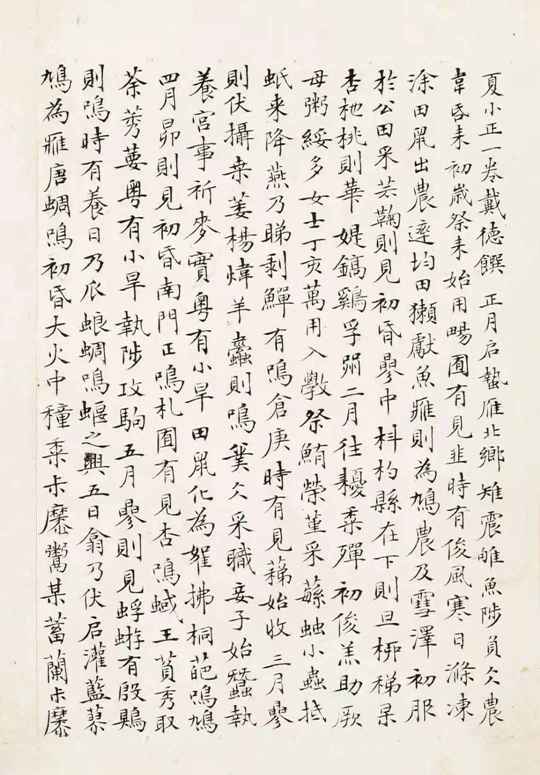 夏小正一卷戴德饌 正月启蟄雁北鄉雉震雊魚陟負仌農
韋昏耒初歲祭耒始用畼囿有見韭時有俊風寒日滌凍
涂田鼠出農率均田獺獻魚雁則為鳩農及雪澤初服
於公田采芸鞠則見初昏參中枓杓縣在下則旦桺稊梅
杏杝桃則華媞鎬鷄孚粥二月往耰黍襌初俊羔助厥
母粥綏多女士丁亥萬用入學祭鮪榮堇采蘩蚰小蟲抵
蚳来降燕乃睇剥鱓有鳴倉庚時有見稊始收三月參
則伏攝桒萎楊㷇羊䖺則鳴頒仌采職妾子始蠶執
養宫事祈麥實粵有小旱田鼠化為鴽拂桐葩鳴鳩
四月昴則見初昏南門正鳴札囿有見杏鳴蜮王萯秀取
荼莠葽粵有小旱執陟攻駒五月參則見蜉蝣有殷鴃
則鳴時有養日乃瓜蜋蜩鳴蝘之興五日翕乃伏启灌藍蓼
鳩為鷹唐蜩鳴初昏大火中種黍尗糜鬻某蓄蘭尗糜